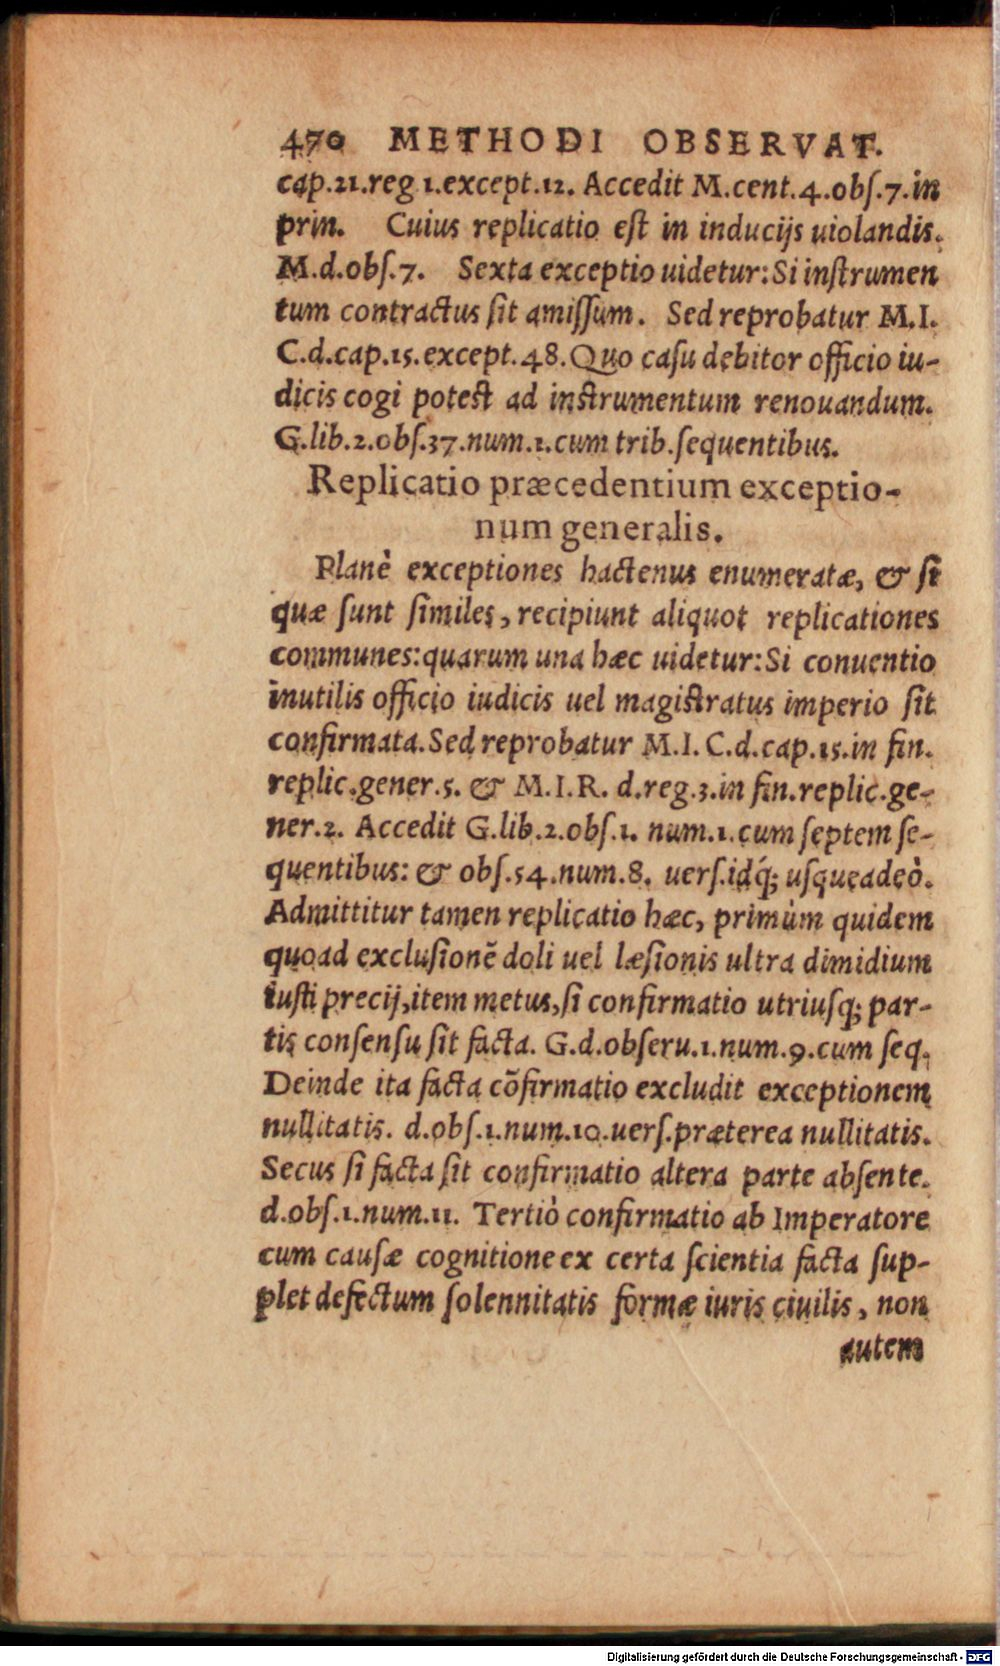 470 METHODI OBSERVAT.
cap.21.reg 1.except.12. Accedit M.cent.4.obſ.7.in
prin. Cuius replicatio eſt in inducijs uiolandis.
M.d.obſ.7. Sexta exceptio uidetur:Si inſtrumen
tum contractus ſit amiſſum. Sed reprobatur M.I.
C.d.cap.15.except.48.Quo caſu debitor officio iu-
dicis cogi poteſt ad inſtrumentum renouandum.
G.lib.2.obſ.37.num.1.cum trib.ſequentibus.
Replicatio præcedentium exceptio-
num generalis.
Planè exceptiones hactenus enumeratæ, & ſi
quæ ſunt ſimiles, recipiunt aliquot replicationes
communes:quarum una hæc uidetur:Si conuentio
inutilis officio iudicis uel magiſtratus imperio ſit
confirmata.Sed reprobatur M.I.C.d.cap.15.in fin.
replic.gener.5. & M.I.R. d.reg.3.in fin.replic.ge-
ner.2. Accedit G.lib.2.obſ.1. num.1.cum ſeptem ſe-
quentibus: & obſ.54.num.8. uerſ.idq́; uſqueadeò.
Admittitur tamen replicatio hæc, primùm quidem
quoad excluſionẽ doli uel læſionis ultra dimidium
iuſti precij,item metus,ſi confirmatio utriuſq; par-
tis conſenſu ſit facta. G.d.obſeru.1.num.9.cum ſeq.
Deinde ita facta cõfirmatio excludit exceptionem
nullitatis. d.obſ.1.num.10.uerſ.præterea nullitatis.
Secus ſi facta ſit confirmatio altera parte abſente.
d.obſ.1.num.11. Tertiò confirmatio ab Imperatore
cum cauſæ cognitione ex certa ſcientia facta ſup-
plet defectum ſolennitatis formæ iuris ciuilis, non
autem
Digitalisierung gefördert durch die Deutsche Forschungsgemeinschaft - DFG